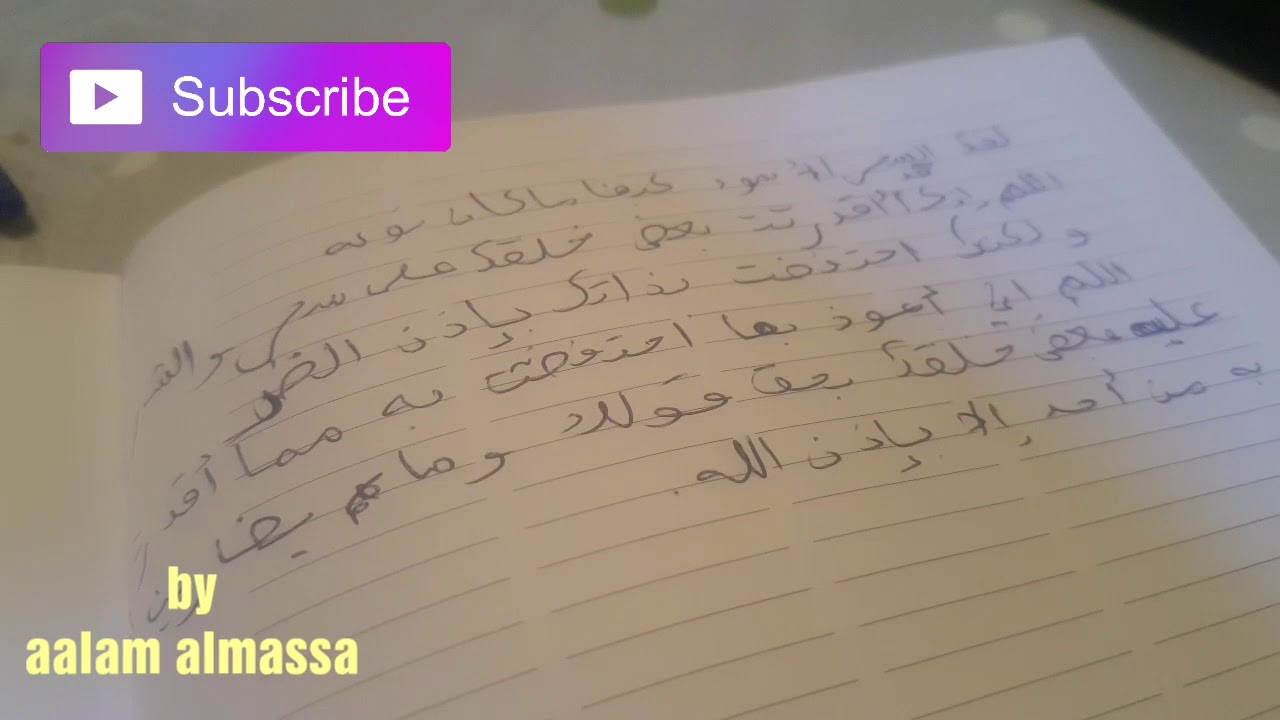 Subscribe
لفك السحر الأسود كيفما كان نوعه
اللهم إنك أقدرت بعض خلقك على السحر والشر
ولكنك احتفظت بذاتك بإذن الضر
اللهم اني أعوذ بما احتفظت به مما أقدرت
عليه بعض خلقك بحق قولك وما هم بضارين
به من أحد إلا بإذن الله.
by
aalam almassa